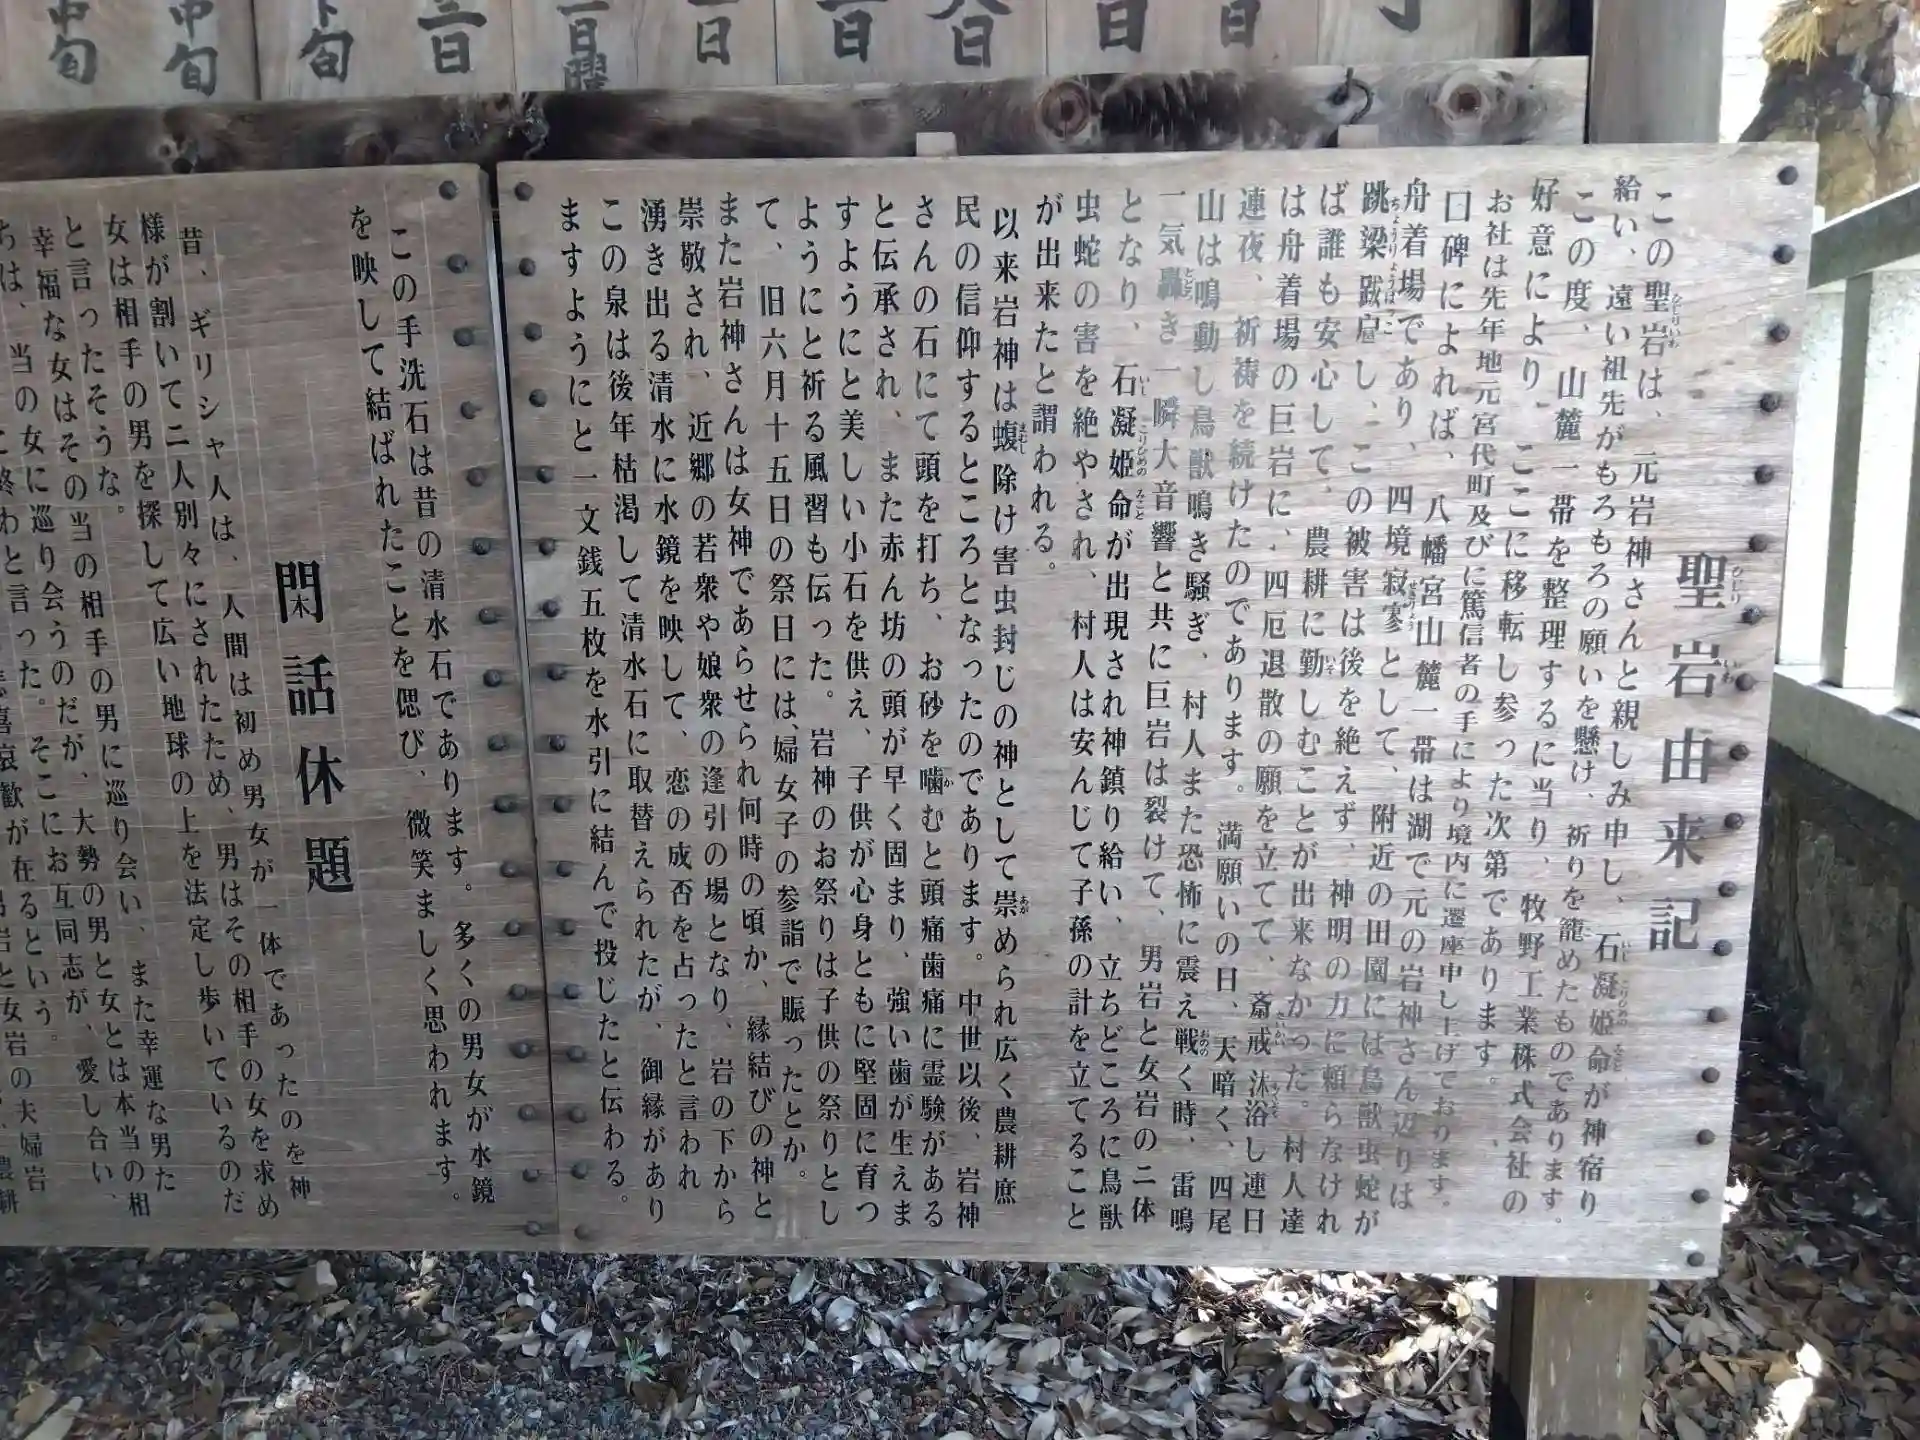 中旬
中旬
下旬
三日
一日曜
一日
一日
八日
一日
日
聖岩由来記
この聖岩は、元岩神さんと親しみ申し、石凝姫命が神宿り
給い、遠い祖先がもろもろの願いを懸け、祈りを籠めたものであります。
この度、山麓一帯を整理するに当り、牧野工業株式会社の
好意により、ここに移転し参った次第であります。
お社は先年地元宮代町及びに篤信者の手により境内に遷座申し上げております。
曰碑によれば、八幡宮山麓一帯は湖で元の岩神さん辺りは
舟着場であり、四境寂寥として、附近の田園には鳥獣虫蛇が
跳梁跋扈し、この被害は後を絶えず、神明の力に頼らなけれ
ば誰も安心して、農耕に勤しむことが出来なかった。村人達
は舟着場の巨岩に、四厄退散の願を立てて、斎戒沐浴し連日
連夜、祈祷を続けたのであります。満願いの日、天暗く、四尾
山は鳴動し鳥獣鳴き騒ぎ、村人また恐怖に震え戦く時、雷鳴
一気轟き一瞬大音響と共に巨岩は裂けて、男岩と女岩の二体
となり、石凝姫命が出現され神鎮り給い、立ちどころに鳥獣
虫蛇の害を絶やされ、村人は安んじて子孫の計を立てること
が出来たと謂われる。
以来岩神は蝮除け害虫封じの神として崇められ広く農耕庶
民の信仰するところとなったのであります。中世以後、岩神
さんの石にて頭を打ち、お砂を噛むと頭痛歯痛に霊験がある
と伝承され、また赤ん坊の頭が早く固まり、強い歯が生えま
すようにと美しい小石を供え、子供が心身ともに堅固に育つ
ようにと祈る風習も伝った。岩神のお祭りは子供の祭りとし
て、旧六月十五日の祭日には、婦女子の参詣で賑ったとか。
また岩神さんは女神であらせられ何時の頃か、縁結びの神と
崇敬され、近郷の若衆や娘衆の逢引の場となり、岩の下から
湧き出る清水に水鏡を映して、恋の成否を占ったと言われ
この泉は後年枯渇して清水石に取替えられたが、御縁があり
ますようにと一文銭五枚を水引に結んで投じたと伝わる。
この手洗石は昔の清水石であります。多くの男女が水鏡
を映して結ばれたことを偲び、微笑ましく思われます。
閑話休題
昔、ギリシャ人は、人間は初め男女が一体であったのを神
様が割いて二人別々にされたため、男はその相手の女を求め
女は相手の男を探して広い地球の上を法定し歩いているのだ
と言ったそうな。
幸福な女はその当の相手の男に巡り会い、また幸運な男た
ちは、当の女に巡り会うのだが、大勢の男と女とは本当の相
と言った。そこにお互同志が、愛し合い、
喜哀歓が在るという。
岩と女岩の夫婦岩
農耕